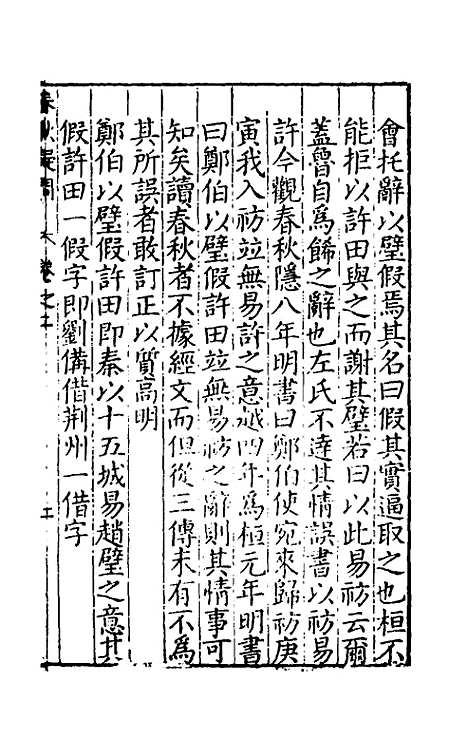 會托辭以璧假焉其名曰假其實逼取之也桓不
能拒以許田與之而謝其璧若曰以此易祊云爾
蓋曾自為餙之辭也左氏不達其情誤書以祊易
許今觀春秋隱八年明書曰鄭伯使宛來歸祊庚
寅我入祊並無易許之意越四年為桓元年明書
曰鄭伯以璧假許田竝無易祊之辭則其情事可
知矣讀春秋者不據經文而但從三傳未有不為
其所誤者敢訂正以質高明
鄭伯以璧假許田即秦以十五城易趙璧之意其
假許田一假字即劉備借荆州一借字
春秋疑問 卷之